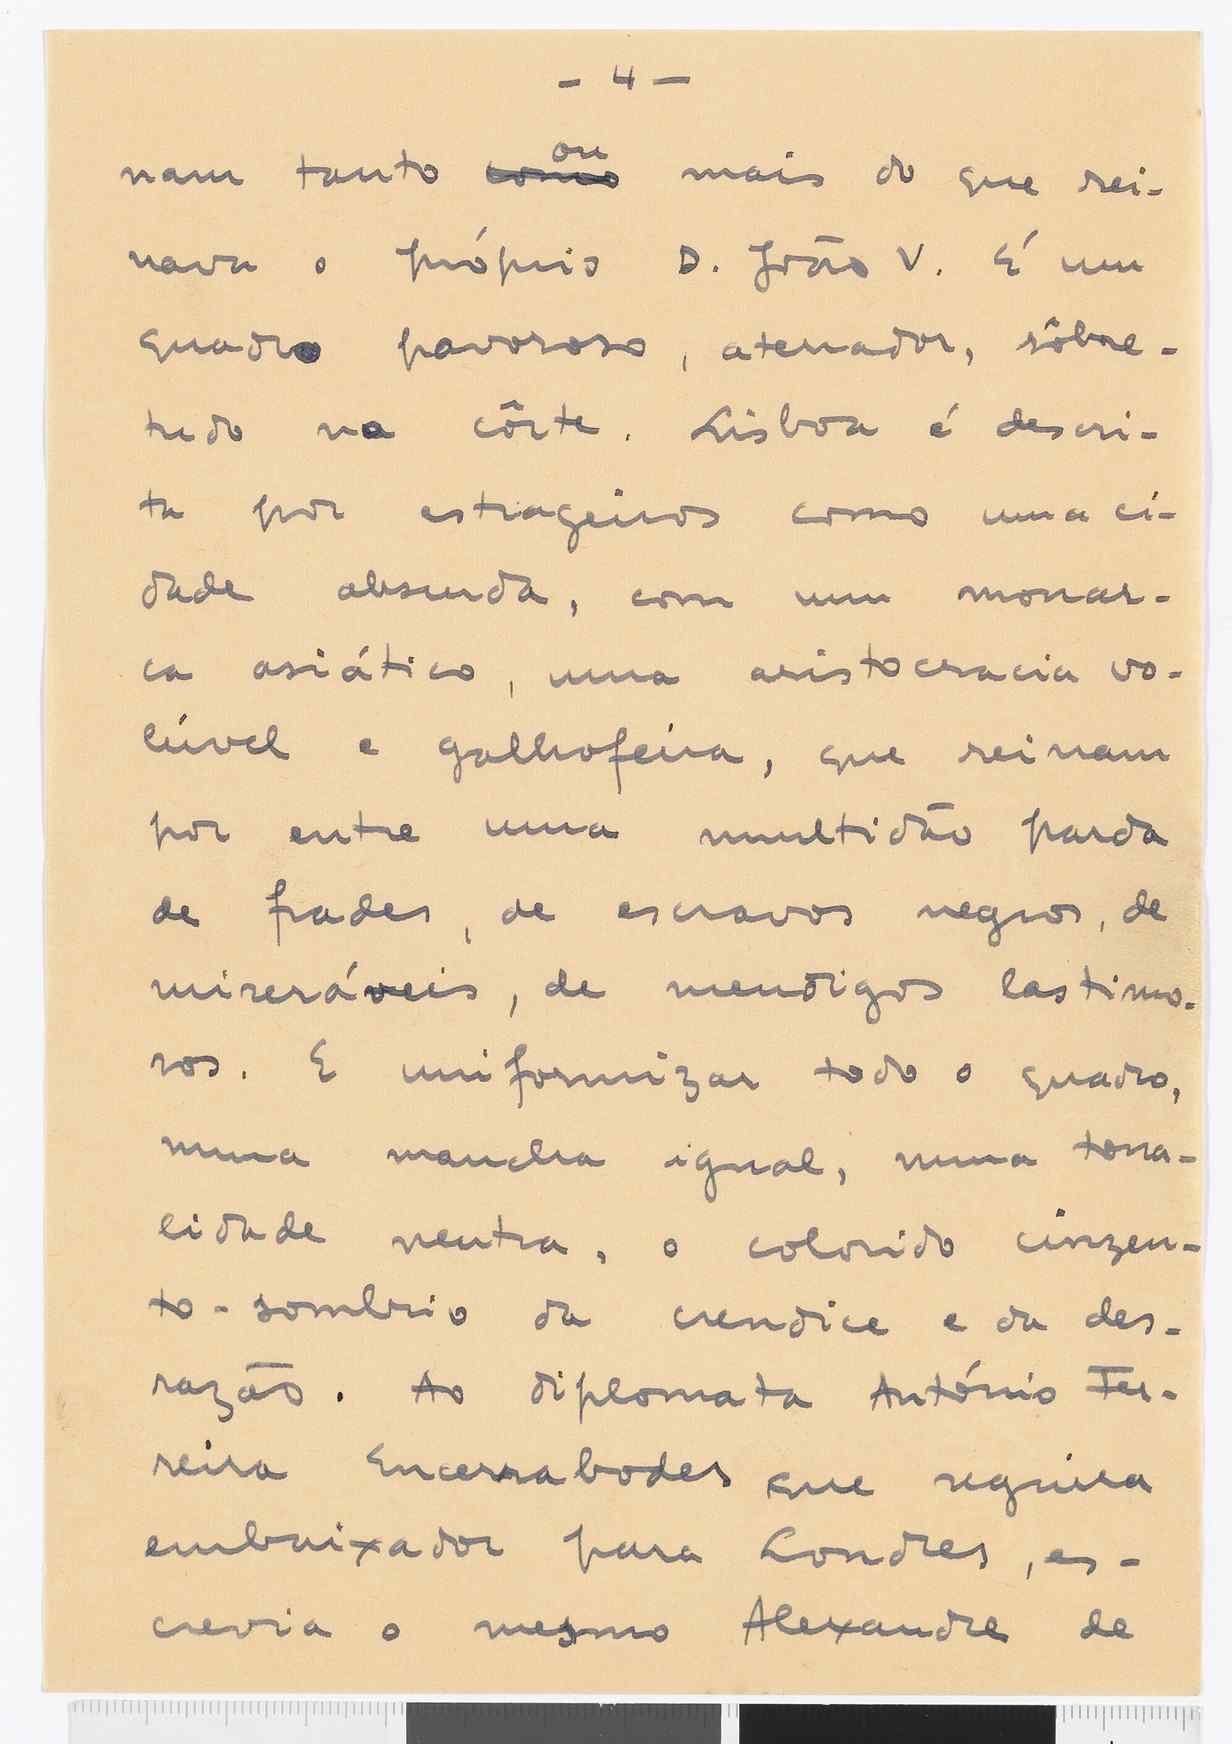 - 4 -
nam tanto ~~como~~ ou mais do que rei-
nava o próprio D. João V. É um
quadro pavoroso, aterrador, sôbre-
tudo na côrte. Lisboa é descri-
ta por estrageiros como uma ci-
dade absurda, com um monar-
ca asiático, uma aristocracia vo-
lúvel e galhofeira, que reinam
por entre uma multidão parda
de frades, de escravos negros, de
miseráveis, de mendigos lastimo-
sos. E uniformizar todo o quadro,
numa mancha igual, numa tona-
lidade neutra, o colorido cinzen-
to-sombrio da crendice e da des-
razão. Ao diplomata António Fer-
reira Encerrabodes que seguira
embaixador para Londres, es-
crevia o mesmo Alexandre de